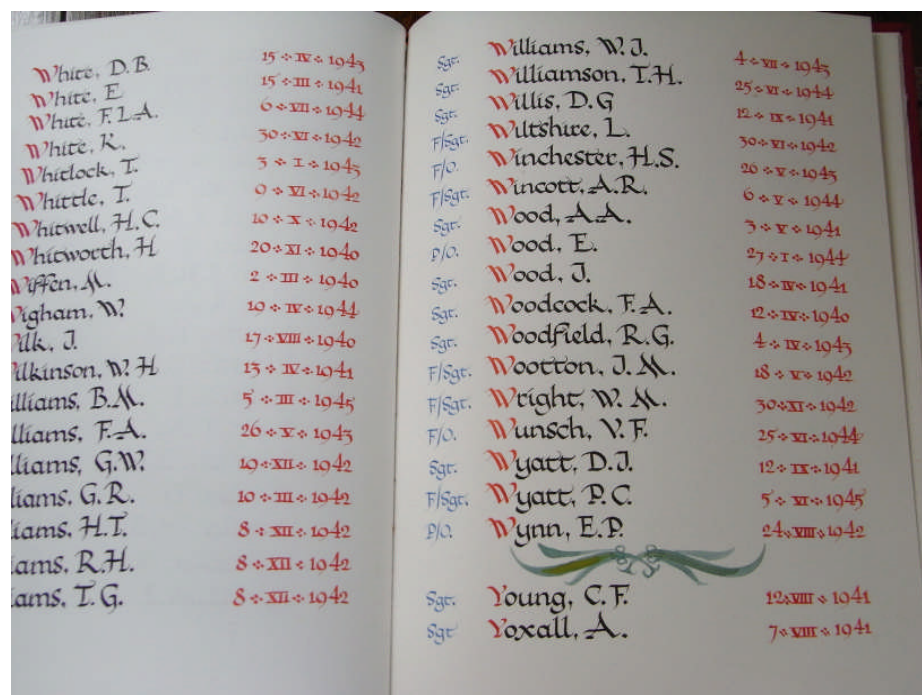 White, D.B. 15 · IV · 1943
White, E 15 · III · 1941
White, F.L.A. 6 · VII · 1944
White, K. 30 · XI · 1942
Whitlock, T. 3 · I · 1943
Whittle, T. 9 · VI · 1942
Whitwell, H.C. 10 · X · 1942
Whitworth, H 20 · XI · 1940
Wiffen, M. 2 · III · 1940
Wigham, W. 19 · IV · 1944
ilk, J. 17 · VIII · 1940
ilkinson, W. H 13 · IV · 1941
illiams, B.M. 5 · III · 1945
lliams, F.A. 26 · V · 1943
lliams, G.W. 19 · XII · 1942
liams, G.R. 10 · III · 1942
iams, H.T. 8 · XII · 1942
ams, R.H. 8 · XII · 1942
ams, T.G. 8 · XII · 1942
Sgt. Williams, W.J. 4 · VII · 1943
Sgt. Williamson, T.H. 25 · VI · 1944
Sgt. Willis, D.G 12 · IX · 1941
F/Sgt. Wiltshire, L. 30 · VI · 1942
F/O. Winchester, H.S. 20 · V · 1943
F/Sgt. Wincott, A.R. 6 · V · 1944
Sgt. Wood, A.A. 3 · V · 1941
P/O. Wood, E. 27 · I · 1944
Sgt. Wood, J. 18 · IV · 1941
Sgt. Woodcock, F.A. 12 · IV · 1940
Sgt. Woodfield, R.G. 4 · IX · 1943
F/Sgt. Wootton, J.M. 18 · V · 1942
F/Sgt. Wright, W.M. 30 · XI · 1942
F/O. Wunsch, V.F. 25 · XI · 1944
Sgt. Wyatt, D.J. 12 · IX · 1941
F/Sgt. Wyatt, P.C. 5 · VI · 1945
P/O. Wynn, E.P. 24 · VIII · 1942
Sgt. Young, C.F. 12 · VIII · 1941
Sgt Yoxall, A. 7 · VIII · 1941